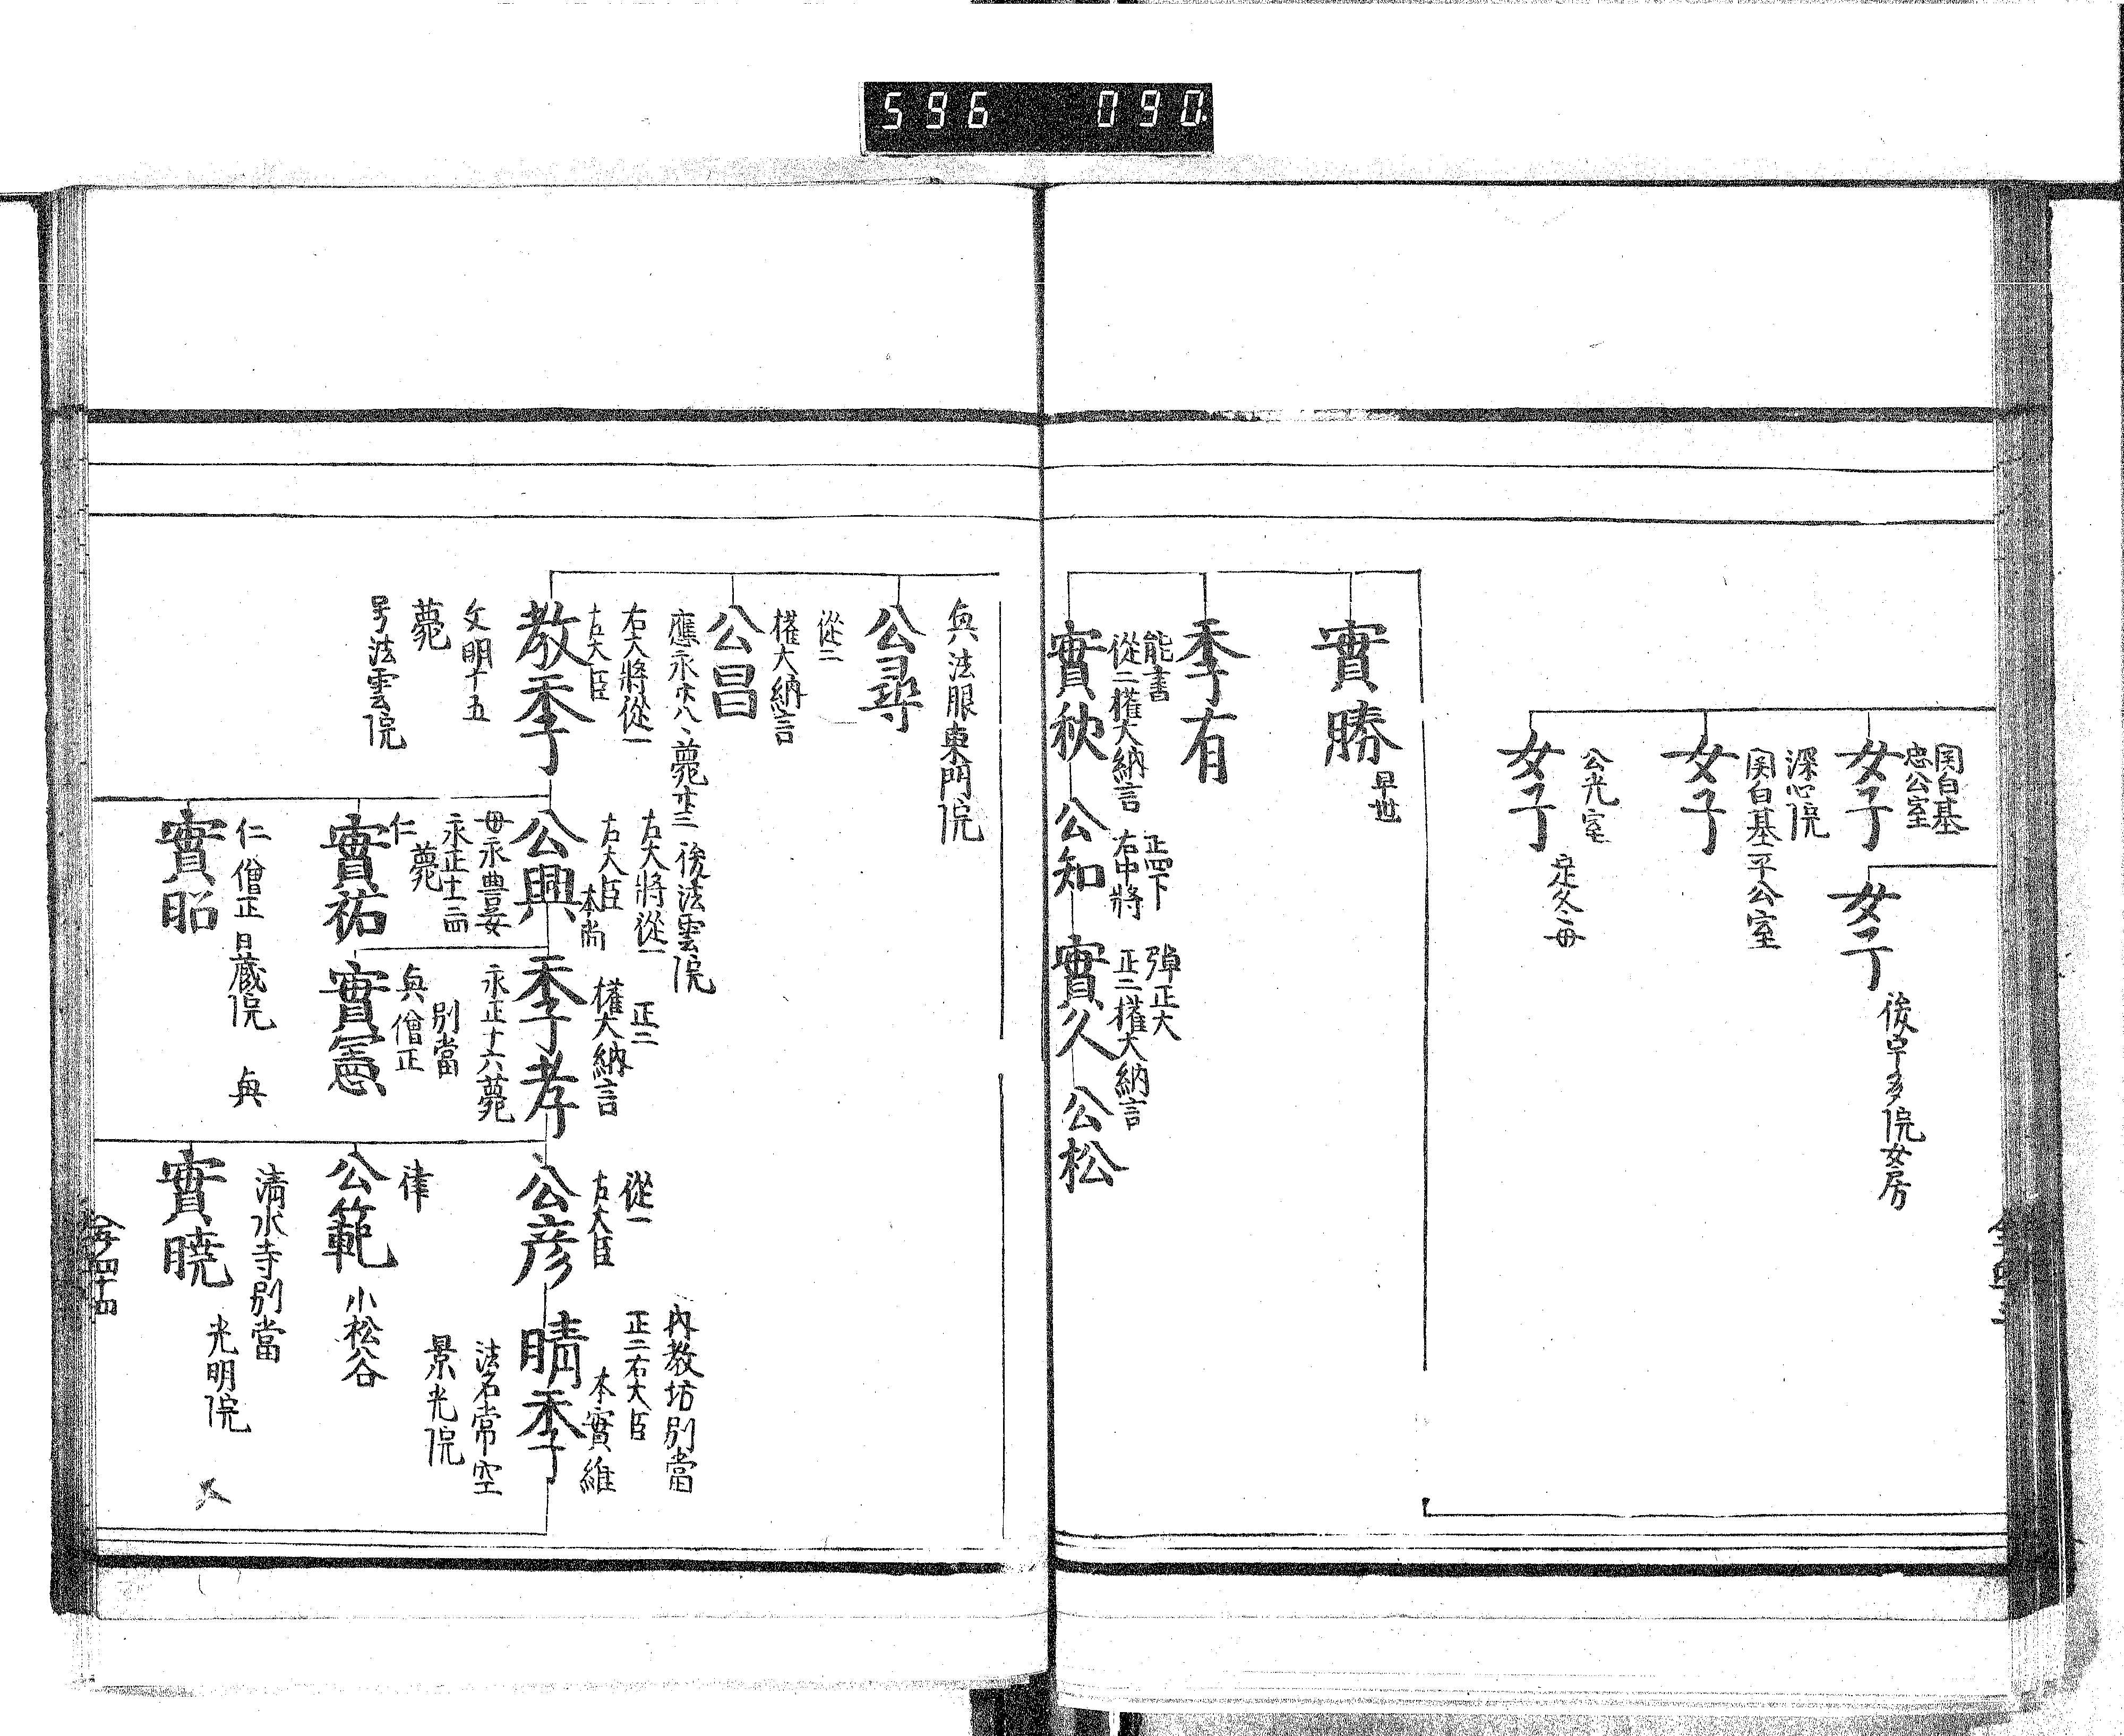 596 090
関白基
忠公室
女子
女子
後宇多院女房
深心院
関白基平公室
女子
公光室
女子
定冬母
實勝
早世
季有
能書
從二權大納言
實秋
正四下
右中將
公知
彈正大
正二權大納言
實久
公松
興法服東門院
公尋
從二
權大納言
公昌
右大將從一
左大臣
教季
文明十五
薨
号法雲院
後法雲院
左大將從一
右大臣
本尚
公興
母永豊女
薨
仁
實祐
仁僧正日藏院
興
實昭
正二
權大納言
季孝
永正十六薨
別當
興僧正
實憲
從一
左大臣
公彦
律
公範
小松谷
清水寺別當
實曉
光明院
内教坊別當
正二右大臣
本實維
晴季
法名常空
景光院